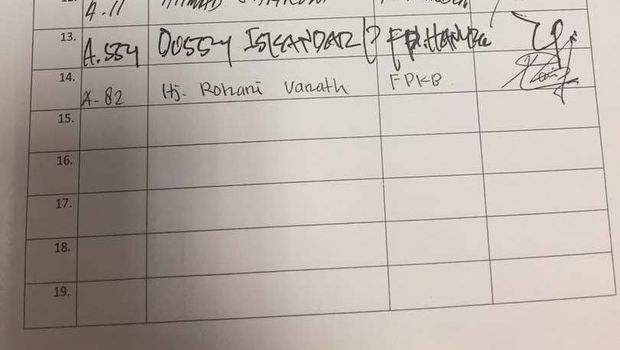 A.11
13. A.554 DOSSY ISKANDAR P F.P.HANURA
14. A-82 Hj. Rohani Vanath FPKB
15.
16.
17.
18.
19.